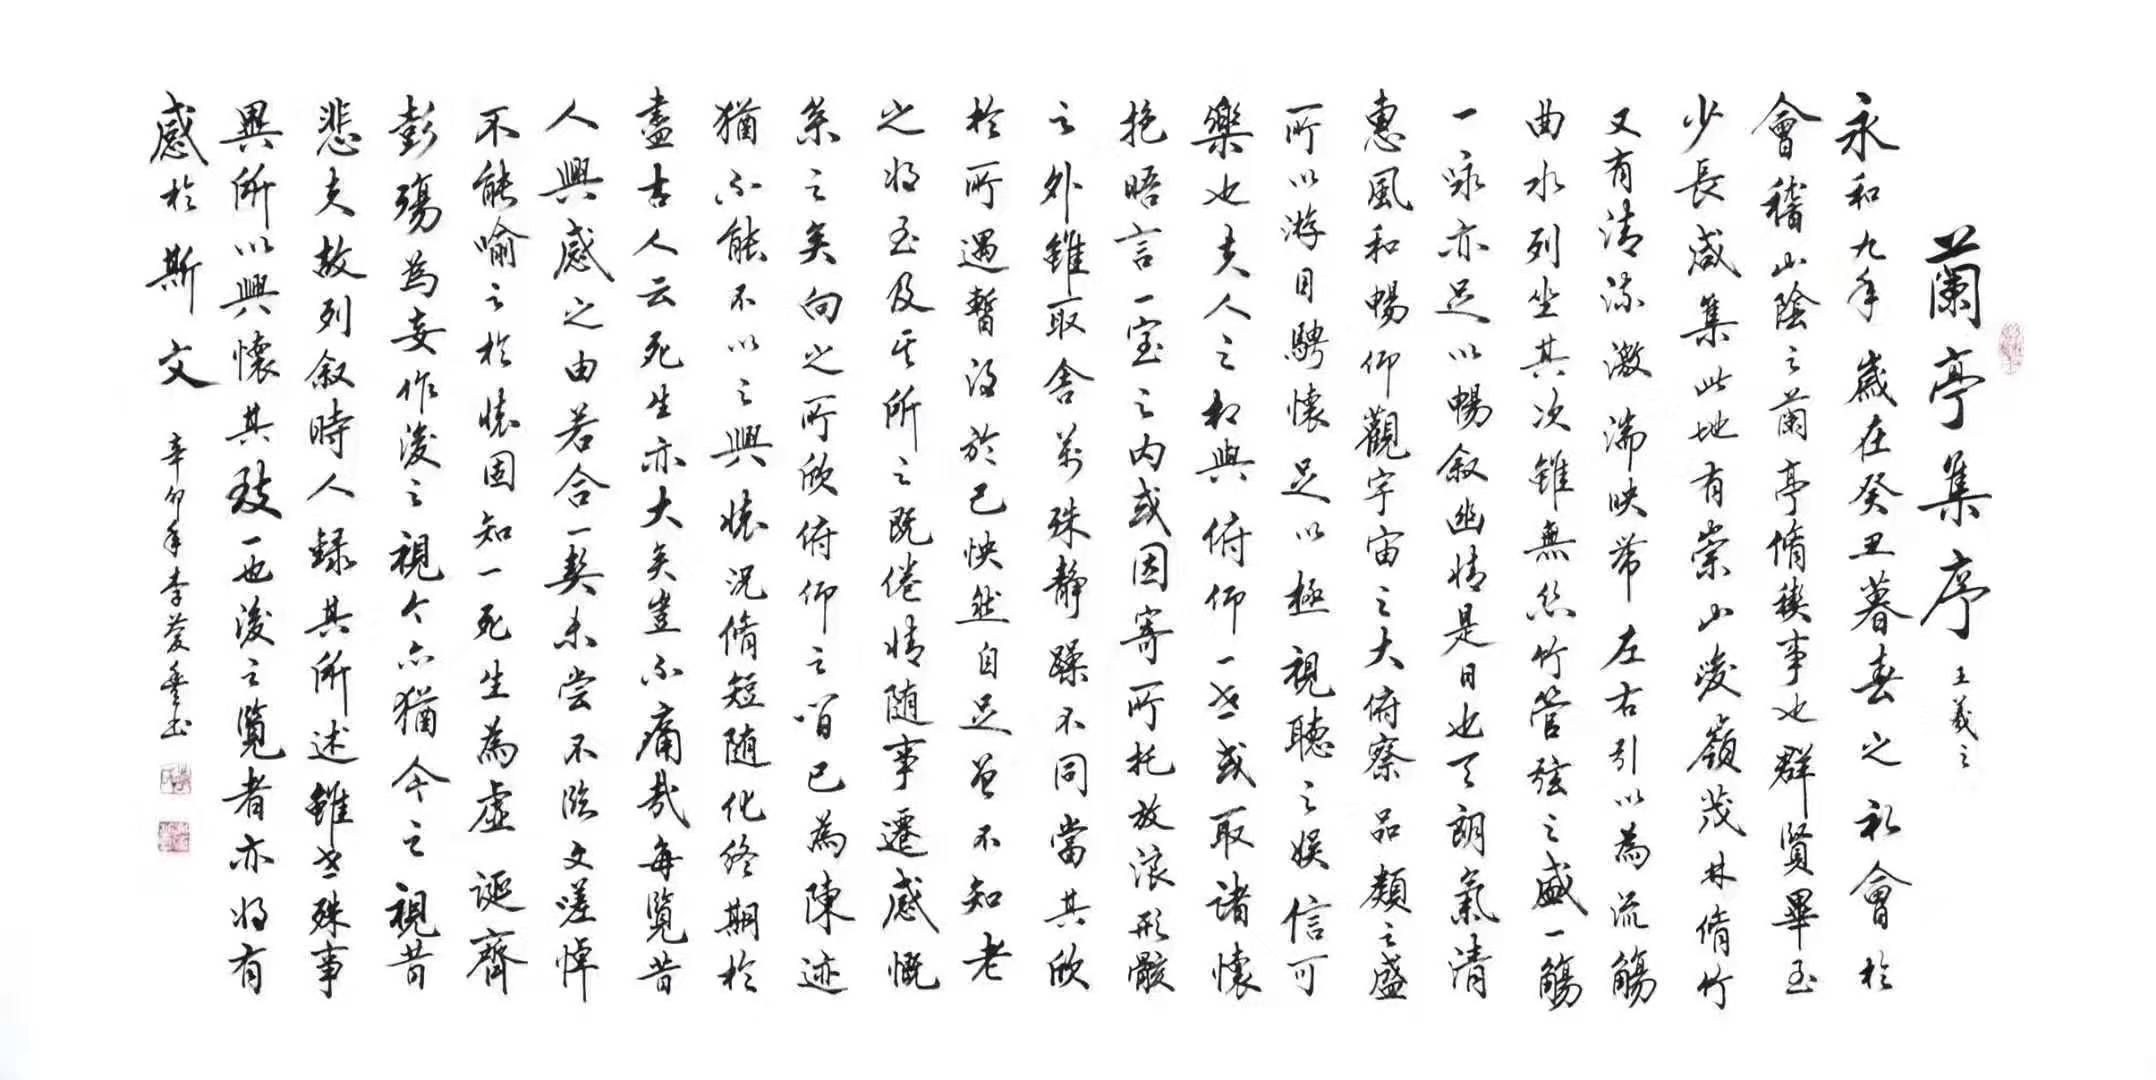 蘭亭集序 王羲之
永和九年歲在癸丑暮春之初會於
會稽山陰之蘭亭脩禊事也群賢畢至
少長咸集此地有崇山峻嶺茂林脩竹
又有清流激湍映帶左右引以為流觴
曲水列坐其次雖無絲竹管弦之盛一觴
一詠亦足以暢叙幽情是日也天朗氣清
惠風和暢仰觀宇宙之大俯察品類之盛
所以游目騁懷足以極視聽之娛信可
樂也夫人之相與俯仰一世或取諸懷
抱晤言一室之内或因寄所托放浪形骸
之外雖取舍萬殊静躁不同當其欣
於所遇暫得於己怏然自足曾不知老
之将至及其所之既倦情随事遷感慨
系之矣向之所欣俯仰之間已為陳迹
猶不能不以之興懷況脩短随化終期於
盡古人云死生亦大矣豈不痛哉每覽昔
人興感之由若合一契未嘗不臨文嗟悼
不能喻之於懷固知一死生為虛誕齊
彭殤為妄作後之視今亦猶今之視昔
悲夫故列叙時人録其所述雖世殊事
異所以興懷其致一也後之覽者亦将有
感於斯文 辛卯年李愛書